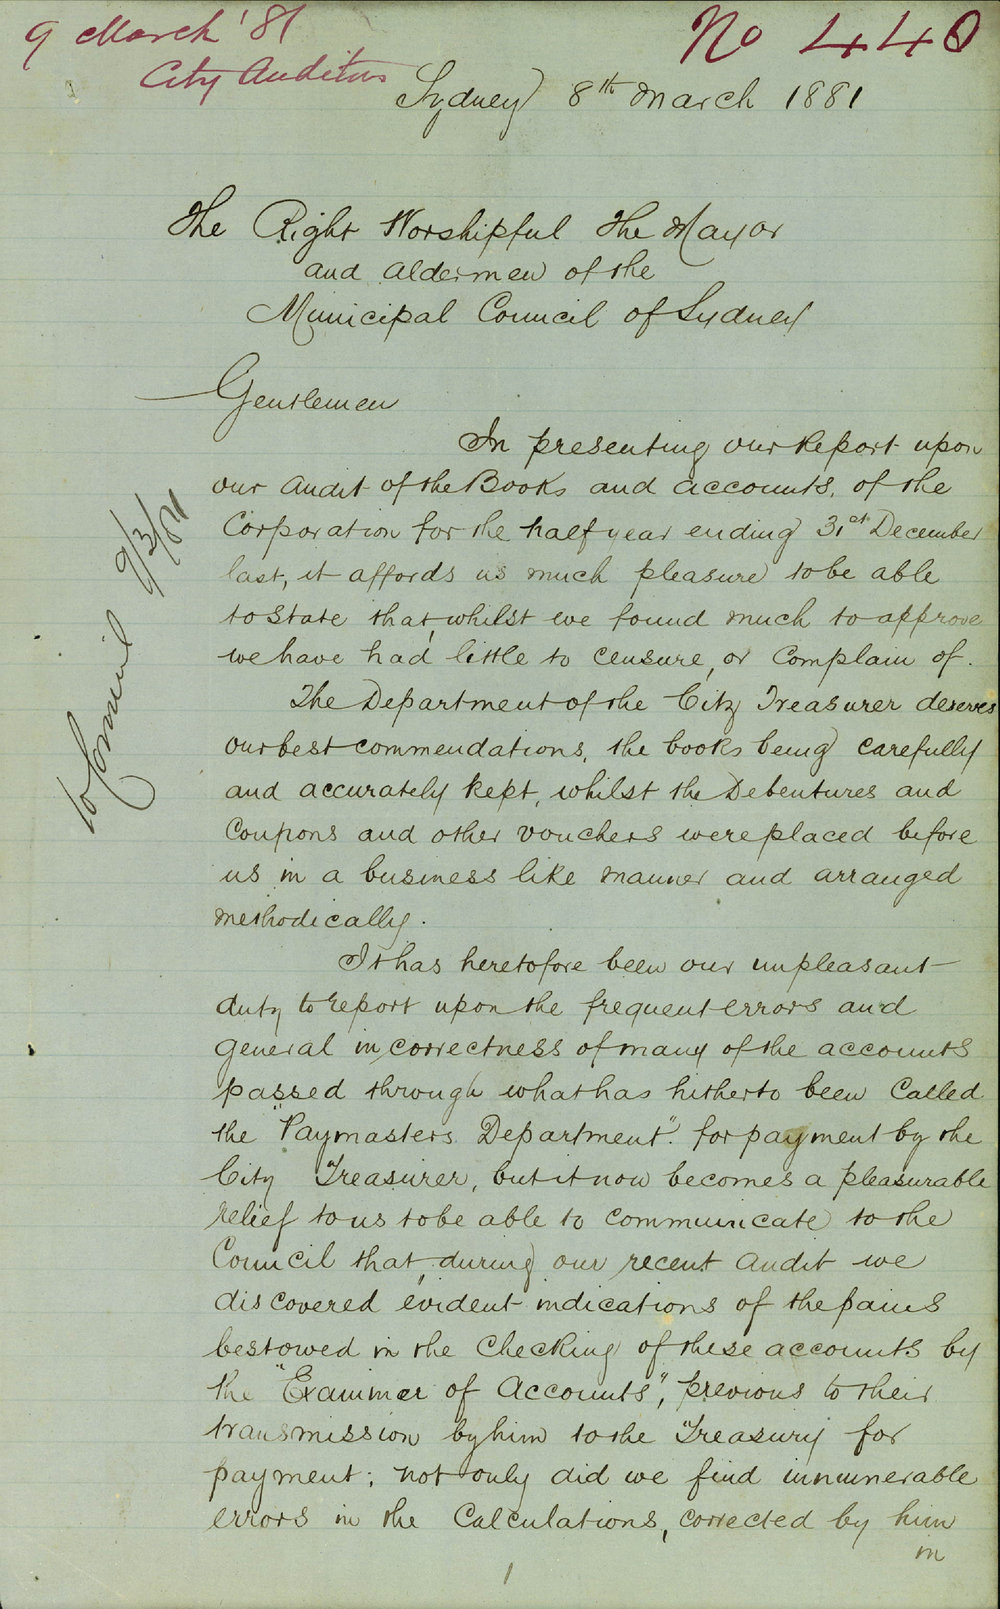 9 March '81
City Auditors
No 440
Sydney 8th March 1881
The Right Worshipful The Mayor
and Aldermen of the
Municipal Council of Sydney
Gentlemen
In presenting our Report upon
our Audit of the Books and Accounts, of the
Corporation for the half year ending 31st December
last, it affords us much pleasure to be able
to State that, whilst we found much to approve
we have had little to censure, or Complain of.
The Department of the City Treasurer deserves
our best commendations, the books being carefully
and accurately kept, whilst the Debentures and
Coupons and other vouchers were placed before
us in a business like manner and arranged
methodically.
It has heretofore been our unpleasant
duty to report upon the frequent errors and
general incorrectness of many of the accounts
passed through what has hitherto been Called
the "Paymasters Department". for payment by the
City Treasurer, but it now becomes a pleasurable
relief to us to be able to communicate to the
Council that, during our recent Audit we
discovered evident indications of the pains
bestowed in the Checking of these accounts by
the "Examiner of Accounts", previous to their
transmission by him to the Treasury for
payment; not only did we find innumerable
errors in the Calculations, corrected by him
in
1
to Council 9/3/81